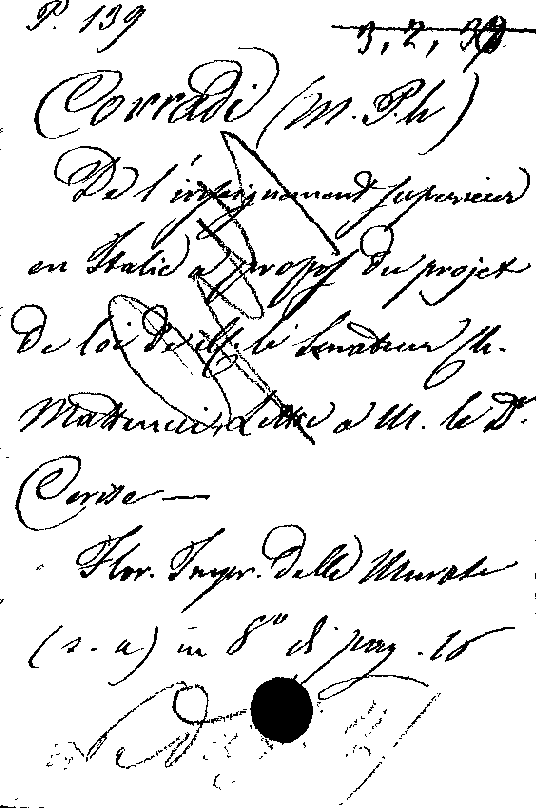 P. 139 3, 2, 3
Corradi (M. Ph)
De l'enseignement superieur
en Italie a propos du projet
de loi de M. le Senateur Ch.
Matteucci, Lettre a M. le Dr.
Cerise —
Flor. Impr. delle Murate
(s. a) in 8º di pag. 16